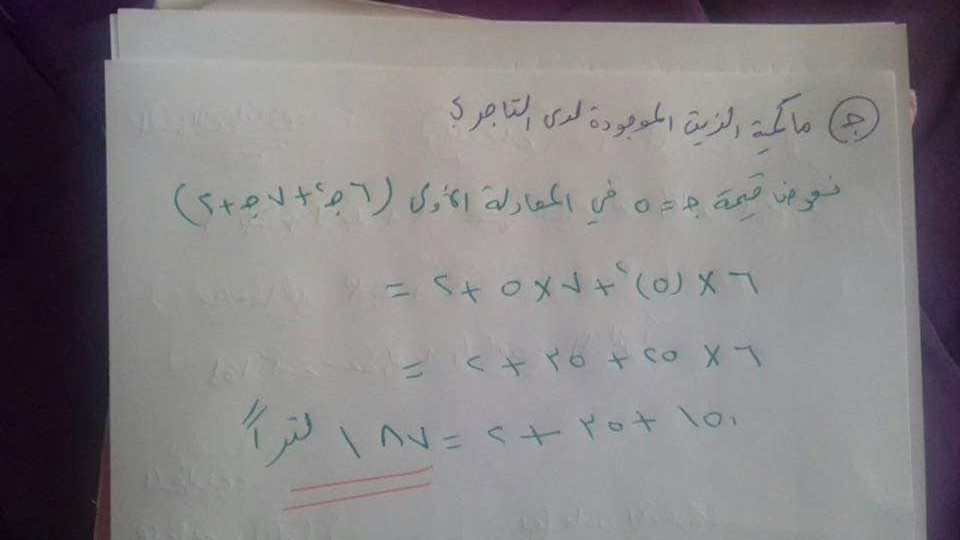 ج ما كمية الزيت الموجودة لدى التاجر ؟
نعوض قيمة ج = ٥ في المعادلة الأولى (٦ج٢+٧ج+٢)
٦ × (٥)٢ + ٧ × ٥ + ٢ =
٦ × ٢٥ + ٣٥ + ٢ =
١٥٠ + ٣٥ + ٢ = ١٨٧ لتراً